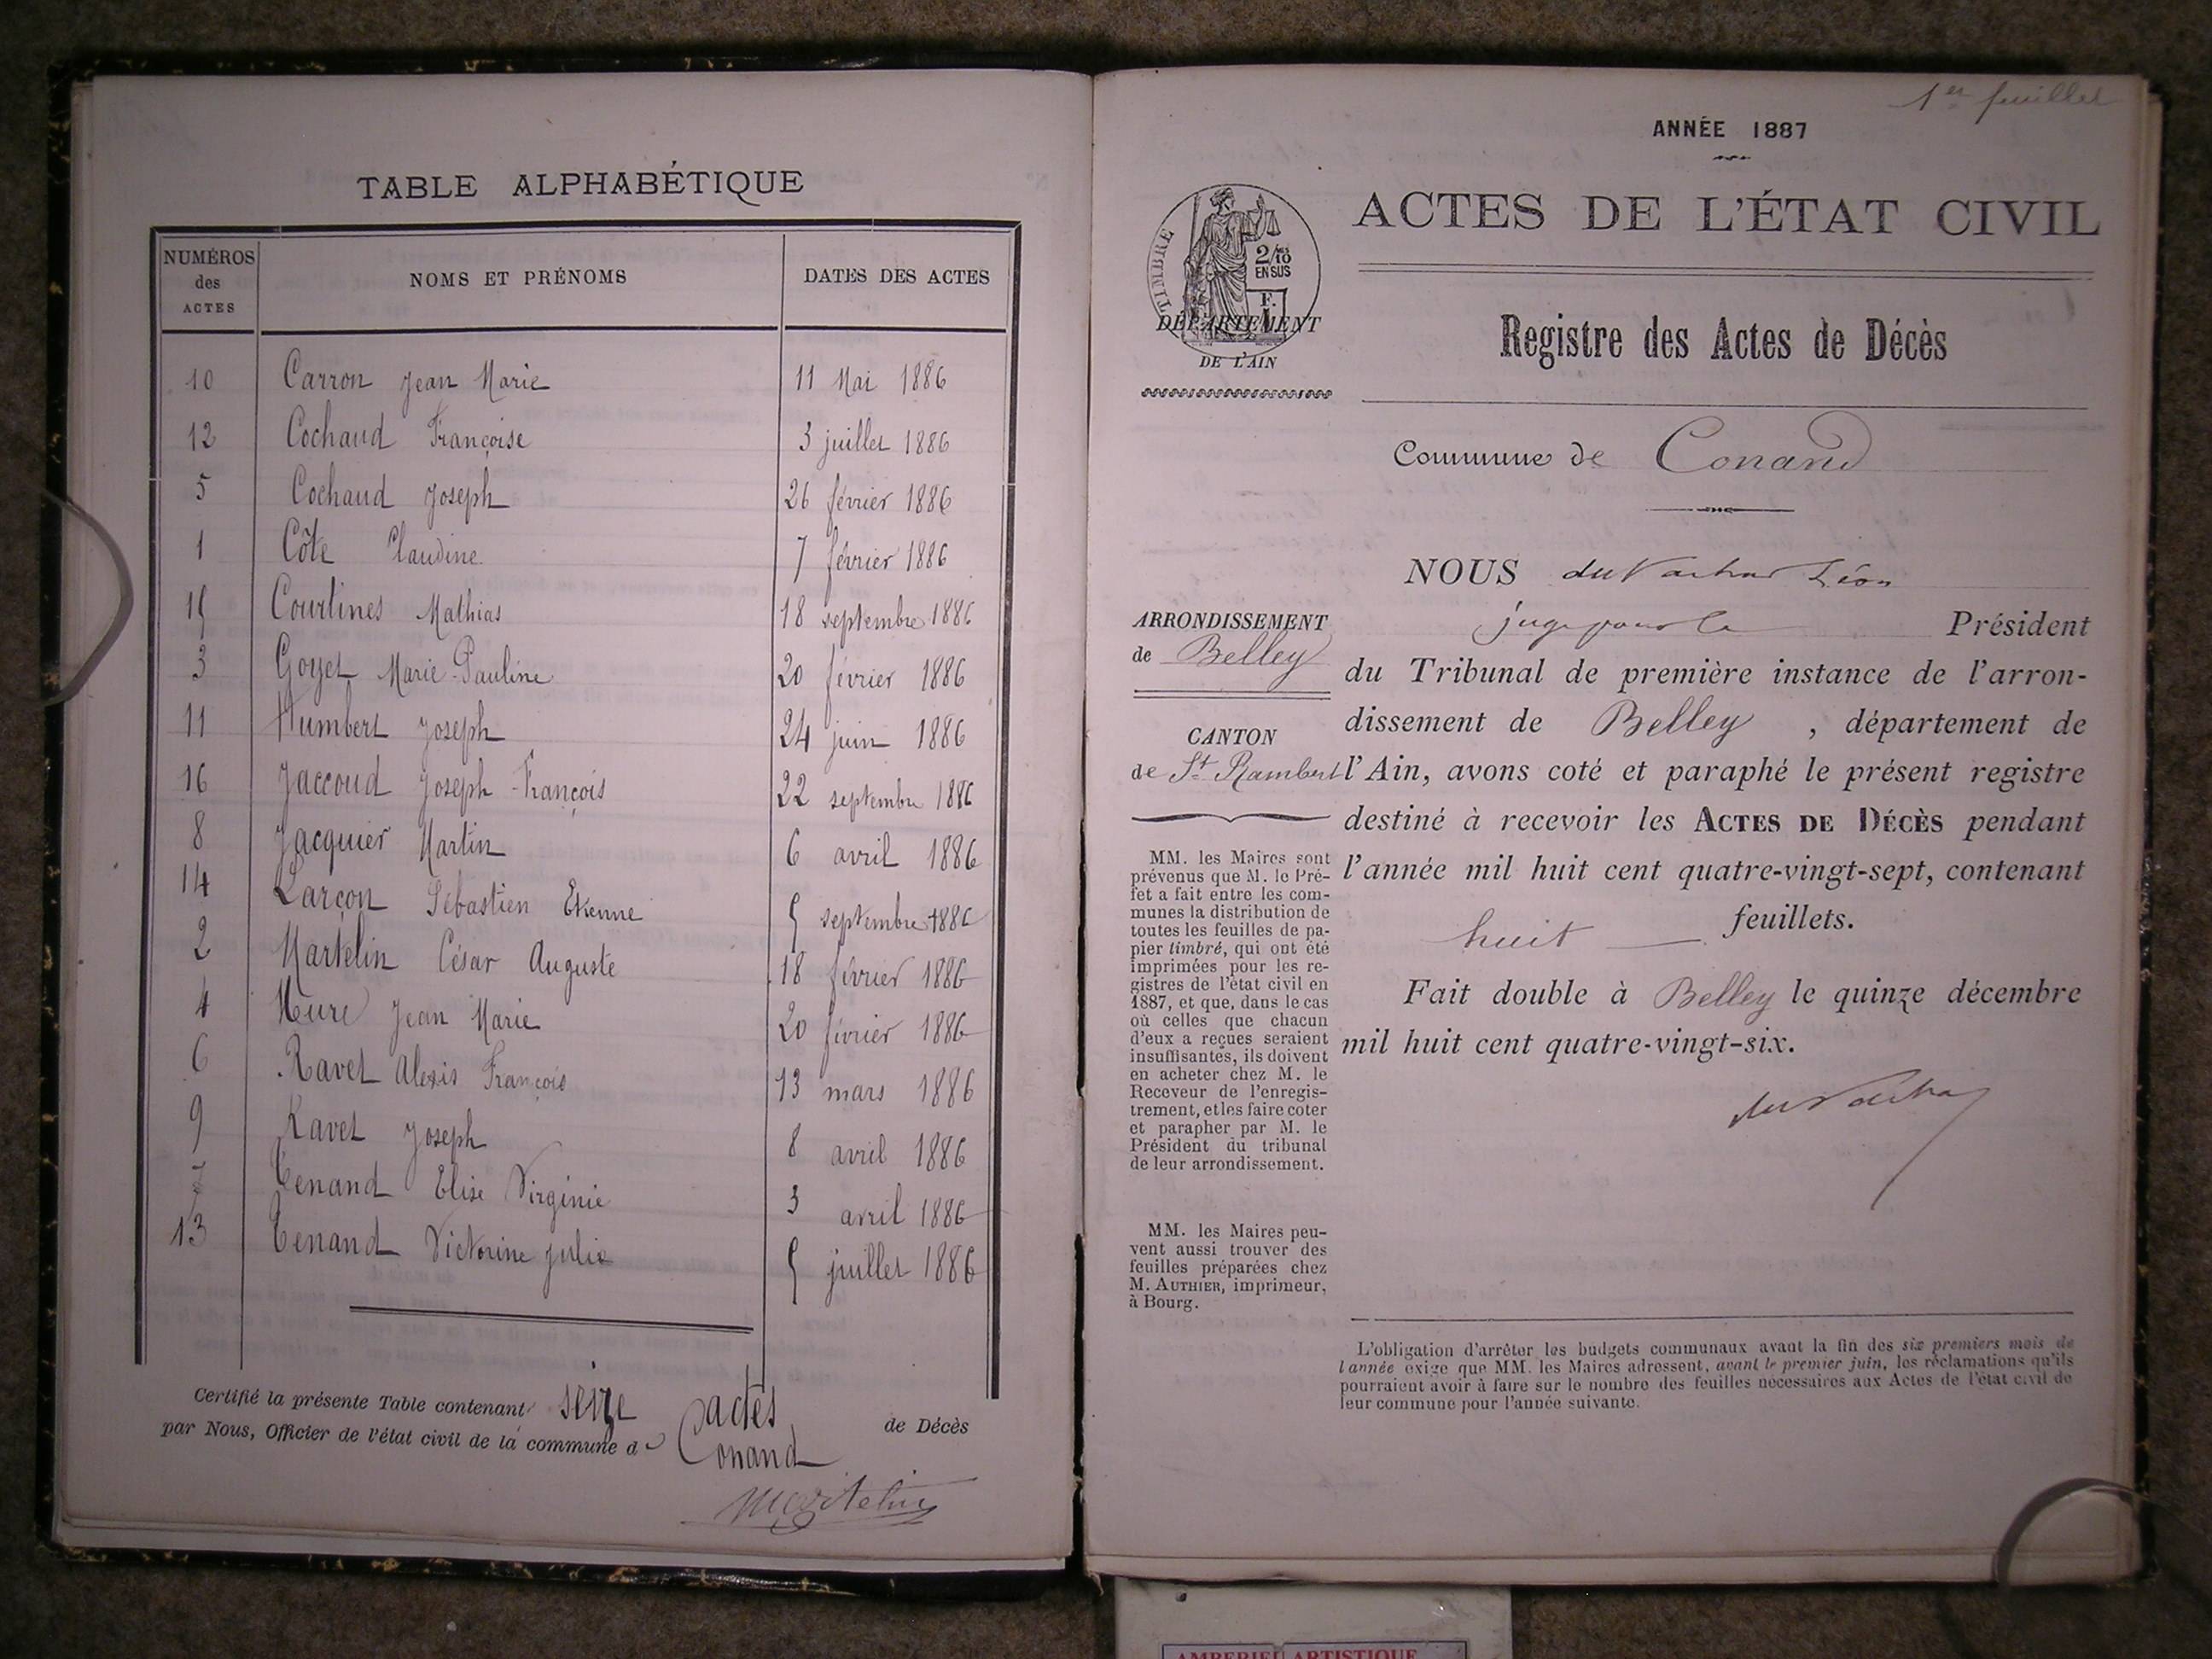 TABLE ALPHABÉTIQUE
NUMÉROS des ACTES NOMS ET PRÉNOMS DATES DES ACTES
10 Carron Jean Marie 11 Mai 1886
12 Cochaud Françoise 3 juillet 1886
5 Cochaud Joseph 26 février 1886
1 Côte Claudine 7 février 1886
15 Courtines Mathias 18 septembre 1886
3 Goyet Marie-Pauline 20 février 1886
11 Humbert Joseph 24 juin 1886
16 Jaccoud Joseph-François 22 septembre 1886
8 Jacquier Martin 6 avril 1886
14 Larçon Sébastien Etienne 5 septembre 1886
2 Martelin César Auguste 18 février 1886
4 Jean Marie 20 février 1886
6 Ravet Alexis François 13 mars 1886
9 Ravet Joseph 8 avril 1886
7 Tenand Elise Virginie 3 avril 1886
13 Tenand Victorine Julie 5 juillet 1886
Certifié la présente Table contenant seize actes de Décès
par Nous, Officier de l'état civil de la commune de Conand
Martelin
1er feuillet
ANNÉE 1887
ACTES DE L'ÉTAT CIVIL
TIMBRE
2/10
EN SUS
F.
DÉPARTEMENT
DE L'AIN
Registre des Actes de Décès
Commune de Conand
ARRONDISSEMENT
de Belley
CANTON
de St Rambert
MM. les Maires sont
prévenus que M. le Pré-
fet a fait entre les com-
munes la distribution de
toutes les feuilles de pa-
pier timbré, qui ont été
imprimées pour les re-
gistres de l'état civil en
1887, et que, dans le cas
où celles que chacun
d'eux a reçues seraient
insuffisantes, ils doivent
en acheter chez M. le
Receveur de l'enregis-
trement, et les faire coter
et parapher par M. le
Président du tribunal
de leur arrondissement.
MM. les Maires peu-
vent aussi trouver des
feuilles préparées chez
M. AUTHIER, imprimeur,
à Bourg.
NOUS Léon
juge pour le Président
du Tribunal de première instance de l'arron-
dissement de Belley, département de
l'Ain, avons coté et paraphé le présent registre
destiné à recevoir les ACTES DE DÉCÈS pendant
l'année mil huit cent quatre-vingt-sept, contenant
huit feuillets.
Fait double à Belley le quinze décembre
mil huit cent quatre-vingt-six.
L'obligation d'arrêter les budgets communaux avant la fin des six premiers mois de
l'année exige que MM. les Maires adressent, avant le premier juin, les réclamations qu'ils
pourraient avoir à faire sur le nombre des feuilles nécessaires aux Actes de l'état civil de
leur commune pour l'année suivante.
ARTISTIQUE